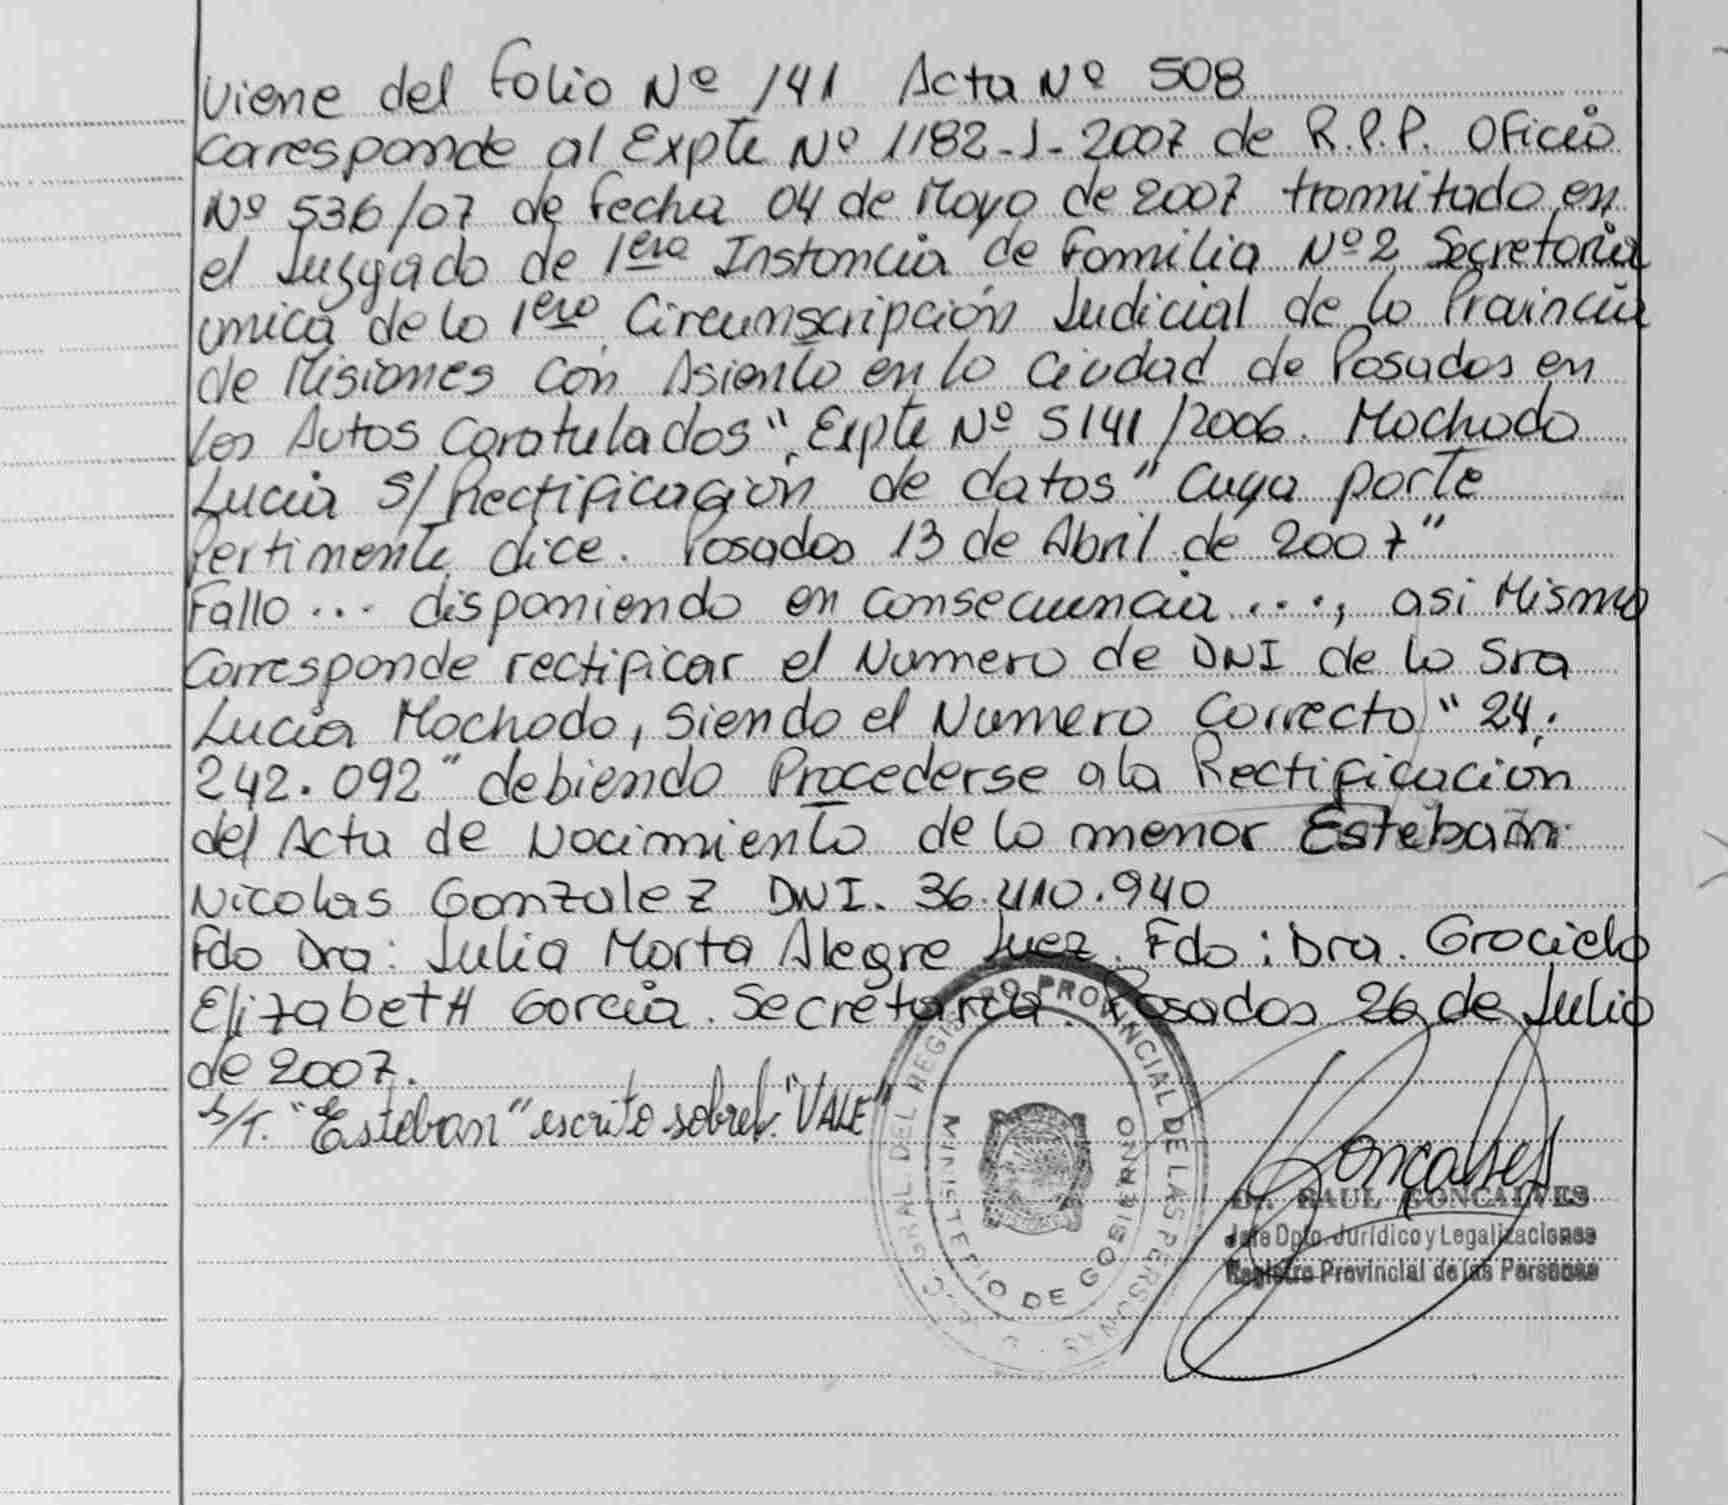 Viene del Folio Nº 141 Acta Nº 508
Corresponde al Expte Nº 1182-J-2007 de R.P.P. Oficio
Nº 536/07 de Fecha 04 de Mayo de 2007 tramitado en
el Juzgado de 1era Instancia de Familia Nº 2 Secretaria
unica de la 1era Circunscripción Judicial de la Provincia
de Misiones con Asiento en la Ciudad de Posadas en
los Autos Caratulados "Expte Nº 5141/2006. Machado
Lucia S/ Rectificación de datos" Cuya parte
Pertinente dice. Posadas 13 de Abril de 2007"
Fallo ... disponiendo en consecuencia ...., asi Mismo
Corresponde rectificar el Numero de DNI de la Sra
Lucia Machado, Siendo el Numero Correcto "24.
242.092" debiendo Procederse a la Rectificacion
del Acta de Nacimiento de la menor Esteban
Nicolas Gonzalez DNI. 36.410.940
Fdo Dra: Julia Marta Alegre Juez. Fdo: Dra. Graciela
ElizabetH Garcia. Secretaria. Posadas 26 de Julio
de 2007.
s/r. "Esteban" escrito sobre "VALE"
GRAL. DEL REGISTRO PROVINCIAL DE LAS PERSONAS
MINISTERIO DE GOBIERNO
Goncalves
Dr. RAUL GONCALVES
Jefe Dpto. Jurídico y Legalizaciones
Registro Provincial de las Personas